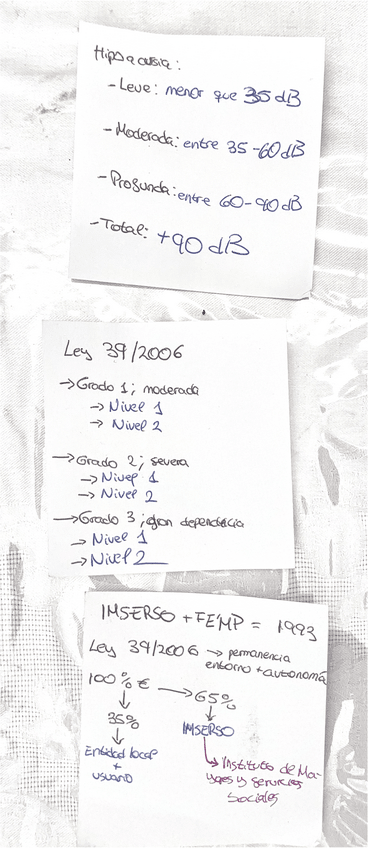 Hipoacusia:
- Leve: menor que 35 dB
- Moderada: entre 35-60 dB
- Profunda: entre 60-90 dB
- Total: +90 dB
Ley 39/2006
→ Grado 1; moderada
→ Nivel 1
→ Nivel 2
→ Grado 2; severa
→ Nivel 1
→ Nivel 2
→ Grado 3; gran dependecia
→ Nivel 1
→ Nivel 2
IMSERSO + FEMP = 1993
Ley 39/2006 → permanencia
entorno + autonomía
100% € → 65%
↓ ↓
35% IMSERSO
↓ ↳ Instituto de Ma-
Entidad local yores y servicios
+ Sociales
usuario